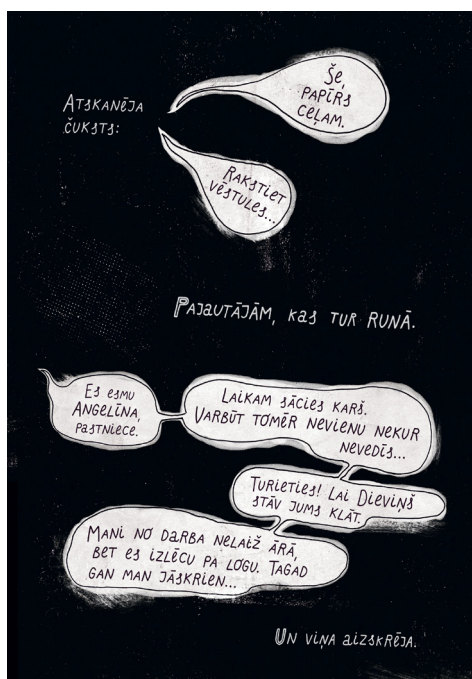 Atskanēja
čuksts:
Še,
papīrs
ceļam.
Rakstiet
vēstules...
Pajautājām, kas tur runā.
Es esmu
Angelīna,
pastniece.
Laikam sācies karš.
Varbūt tomēr nevienu nekur
nevedīs...
Turieties! Lai Dieviņš
stāv jums klāt.
Mani no darba nelaiž ārā,
bet es izlēcu pa logu. Tagad
gan man jāskrien...
Un viņa aizskrēja.